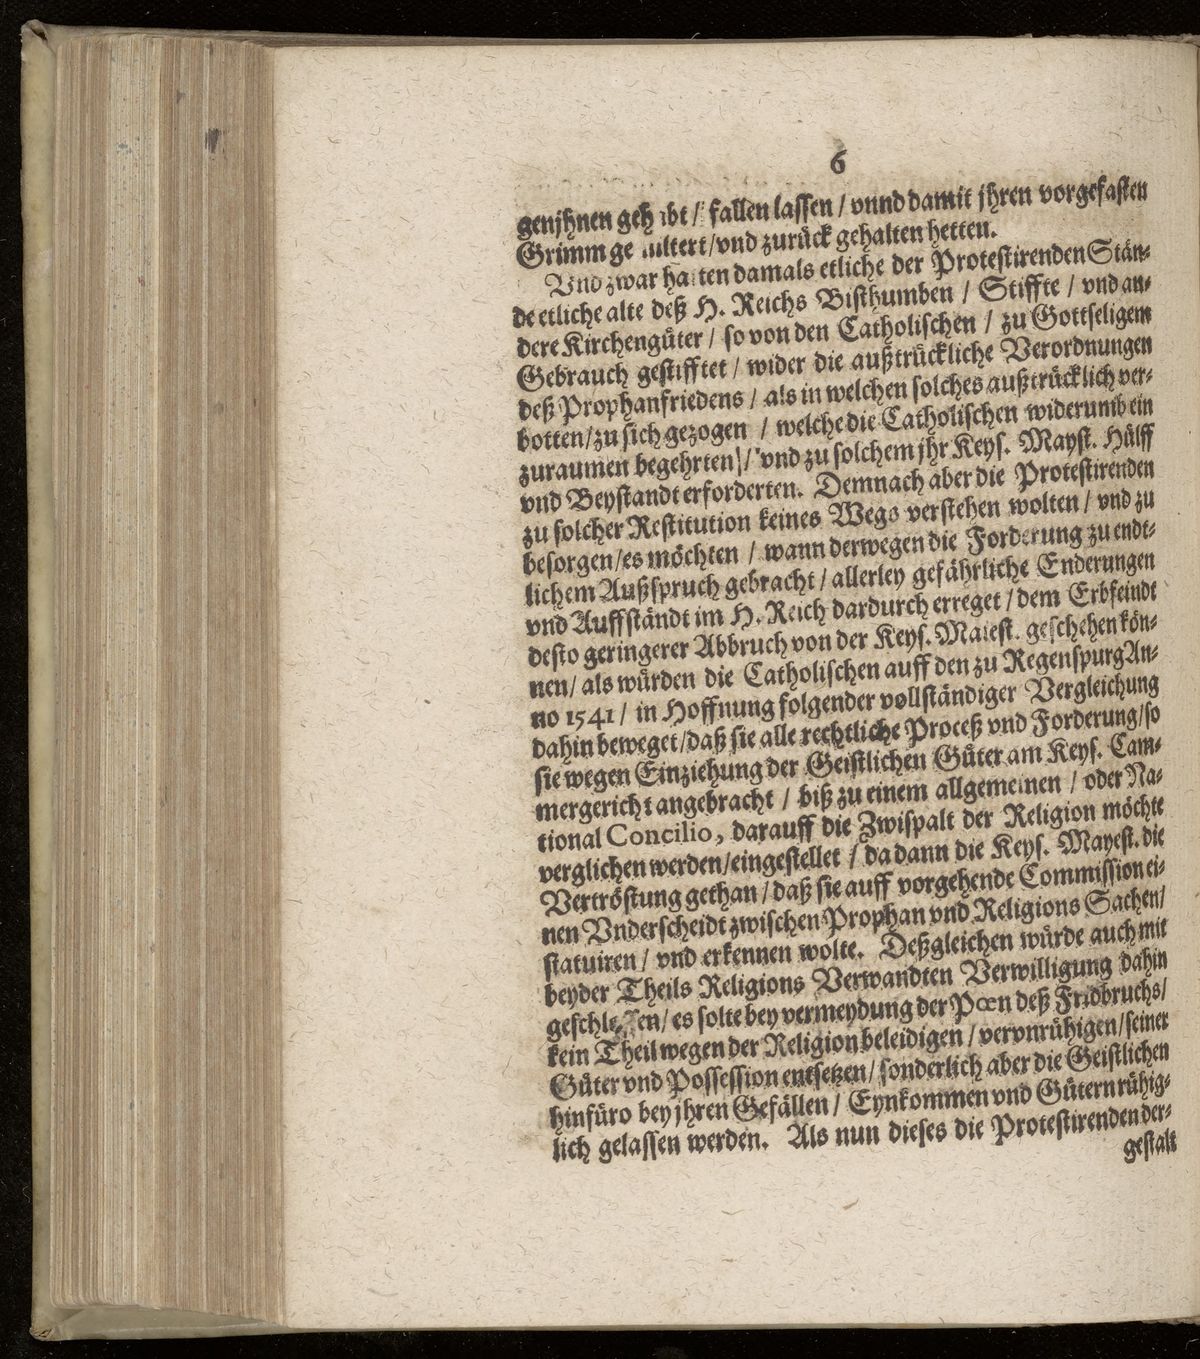 6
genjhnen gehabt / fallen lassen / vnnd damit jhren vorgefasten
Grimm gemiltert / vnd zurück gehalten hetten.
Vnd zwar hatten damals etliche der Protestirenden Stän-
de etliche alte deß H. Reichs Bisthumben / Stiffte / vnd an-
dere Kirchengüter / so von den Catholischen / zu Gottseligem
Gebrauch gestifftet / wider die außtrückliche Verordnungen
deß Prophanfriedens / als in welchen solches außtrücklich ver-
botten / zu sich gezogen / welche die Catholischen widerumb ein
zuraumen begehrten / vnd zu solchem jhr Keys. Mayst. Hülff
vnd Beystandt erforderten. Demnach aber die Protestirenden
zu solcher Restitution keines Wegs verstehen wolten / vnd zu
besorgen / es möchten / wann derwegen die Forderung zu endt-
lichem Außspruch gebracht / allerley gefährliche Enderungen
vnd Auffständt im H. Reich dardurch erreget / dem Erbfeindt
desto geringerer Abbruch von der Keys. Maiest. geschehen kön-
nen / als würden die Catholischen auff den zu Regenspurg An-
no 1541 / in Hoffnung folgender vollständiger Vergleichung
dahin beweget / daß sie alle rechtliche Proceß vnd Forderung / so
sie wegen Einziehung der Geistlichen Güter am Keys. Cam-
mergericht angebracht / biß zu einem allgemeinen / oder Na-
tional Concilio, darauff die Zwispalt der Religion möchte
verglichen werden / eingestellet / da dann die Keys. Mayest. die
Vertröstung gethan / daß sie auff vorgehende Commission ei-
nen Vnderscheidt zwischen Prophan vnd Religions Sachen /
statuiren / vnd erkennen wolte. Deßgleichen würde auch mit
beyder Theils Religions Verwandten Verwilligung dahin
geschlossen / es solte bey vermeydung der Pœn deß Fridbruchs /
kein Theil wegen der Religion beleidigen / vervnrühigen / seiner
Güter vnd Possession entsetzen / sonderlich aber die Geistlichen
hinfüro bey jhren Gefällen / Eynkommen vnd Gütern rühig-
lich gelassen werden. Als nun dieses die Protestirenden der-
gestalt